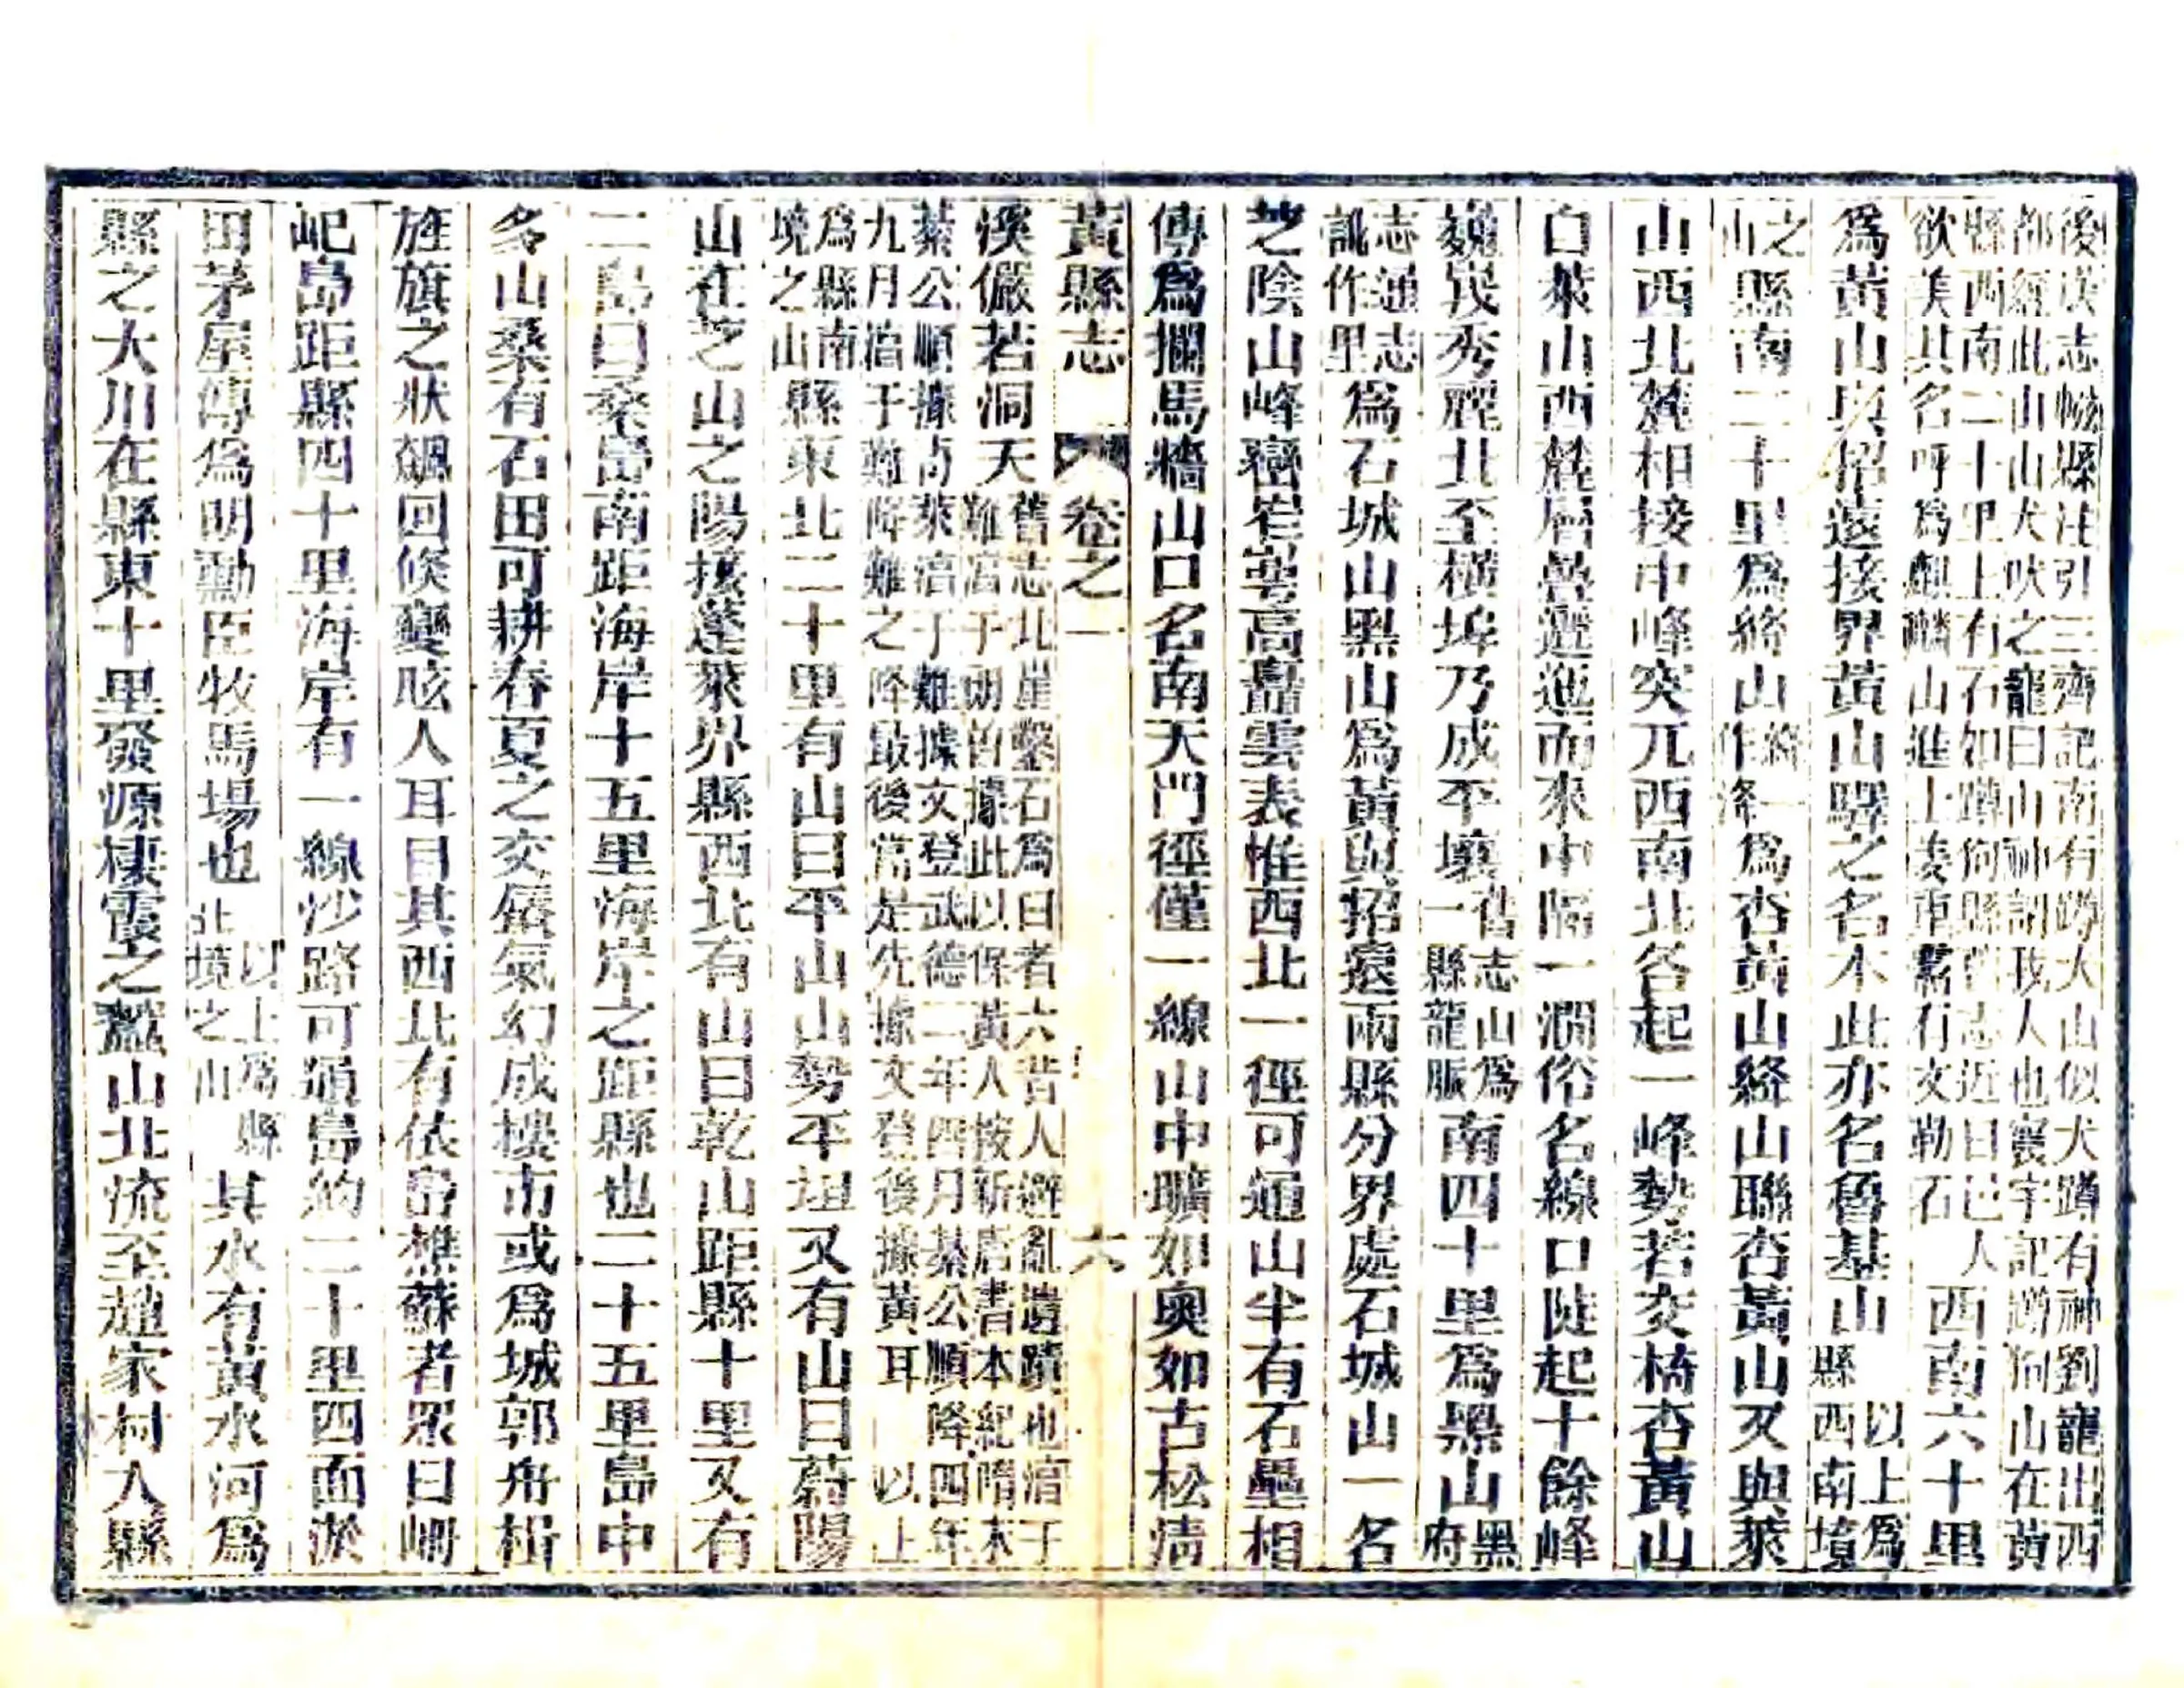 後漢志㡉縣注引三齊記南有蹲犬山似犬蹲有神劉寵出西
都經此山山犬吠之龍曰山神謂我人也寰宇記蹲狗山在黃
縣西南二十里上有石如蹲狗縣舊志近日邑人
欲美其名呼爲麒麟山進士姜重 有文勒石
西南六十里
爲黃山與招遠接界黃山驛之名本此亦名魯基山
以上爲
縣西南境
之山
縣南二十里爲絳山
絳一
作洚
爲杏黃山絳山聯杏黃山又與萊
山西北麓相接中峰突兀西南北各起一峰勢若交椅杏黃山
白萊山西麓層疊邐迤而來中隔一澗俗名線口陡起十餘峰
巍峩秀麗北至橫埠乃成平壤
舊志山爲
一縣龍脈
南四十里爲黑山
黑
府
志通志
訛作里
爲石城山黑山爲黃與招遠兩縣分界處石城山一名
芝陰山峰巒崒嵂高矗雲表惟西北一徑可通山半有石壘相
傳爲攔馬牆山口名南天門徑僅一線山中曠如奧如古松淸
黃縣志
卷之一
六
溪儼若洞天
舊志北崖鑿石爲臼者六昔人避亂遺蹟也淯于
難淯于朗曾據此以保黃人按新唐書本紀隋末
綦公順據 萊淯于難據文登武德二年四月綦公順降四年
九月淯于難降難之降最後當是先據文登後據黃耳
以上
爲縣南
境之山
縣東北二十里有山曰平山山勢平坦又有山曰蔚陽
山在芝山之陽接蓬萊界縣西北有山曰乾山距縣十里又有
二島曰桑島南距海岸十五里海岸之距縣也二十五里島中
多山桑有石田可耕春夏之交蜃氣幻成樓市或爲城郭舟楫
旌旗之狀飆回倏變眩人耳目其西北有依島樵蘇者眾曰㟁
屺島距縣四十里海岸有一線沙路可通島約二十里四面淤
田茅屋傳爲明勳臣牧馬場也
以上爲縣
北境之山
其水有黃水河爲
縣之大川在縣東十里發源棲霞之蠶山北流至趙家村入縣